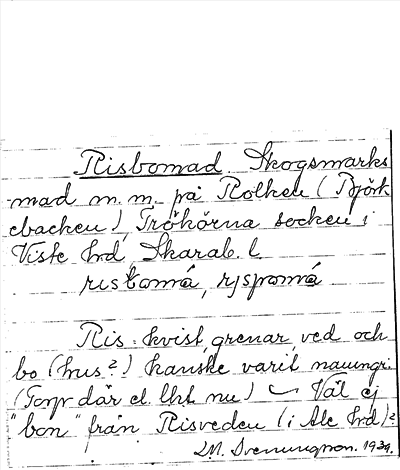 Risbomad Skogsmarks
mad m.m. på Rolken (Björk
ebacken), Trökörna socken i
Viste hrd, Skarab. l.
Ris- kvist, grenar ved och
bo (hus?) kanske varit namngi.
(Torp där el. lkt nu) Väl ej
"bon" från Risveden (i Ale hrd)?
1934.